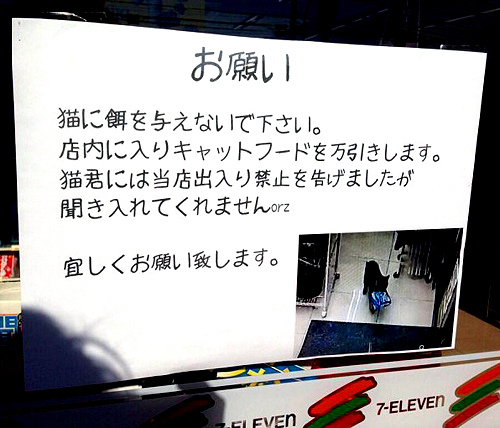 お願い
猫に餌を与えないで下さい。
店内に入りキャットフードを万引きします。
猫君には当店出入り禁止を告げましたが
聞き入れてくれませんorz
宜しくお願い致します。
7-ELEVEn
7-ELEVEn